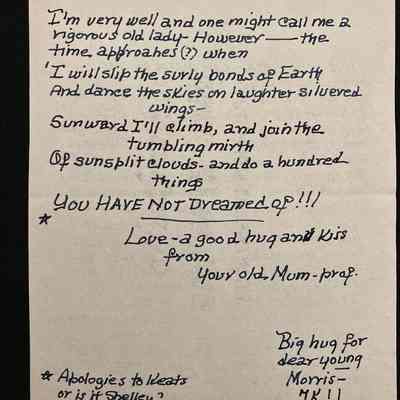 I'm very well and one might call me a
rigorous old lady - However — the
time approahes (?) when
'I will slip the surly bonds of Earth
And dance the skies on laughter silvered
wings -
Sunward I'll climb, and join the
tumbling mirth
Of sunsplit clouds - and do a hundred
things
YOU HAVE NOT Dreamed of!!!
*
Love - a good hug and kiss
from
your old Mum - prof.
Big hug for
dear young
Morris -
* Apologies to Keats
or is it Shelley?